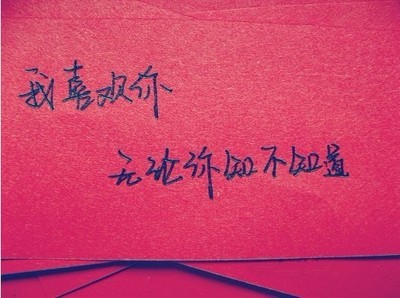 我喜欢你
无论你知不知道